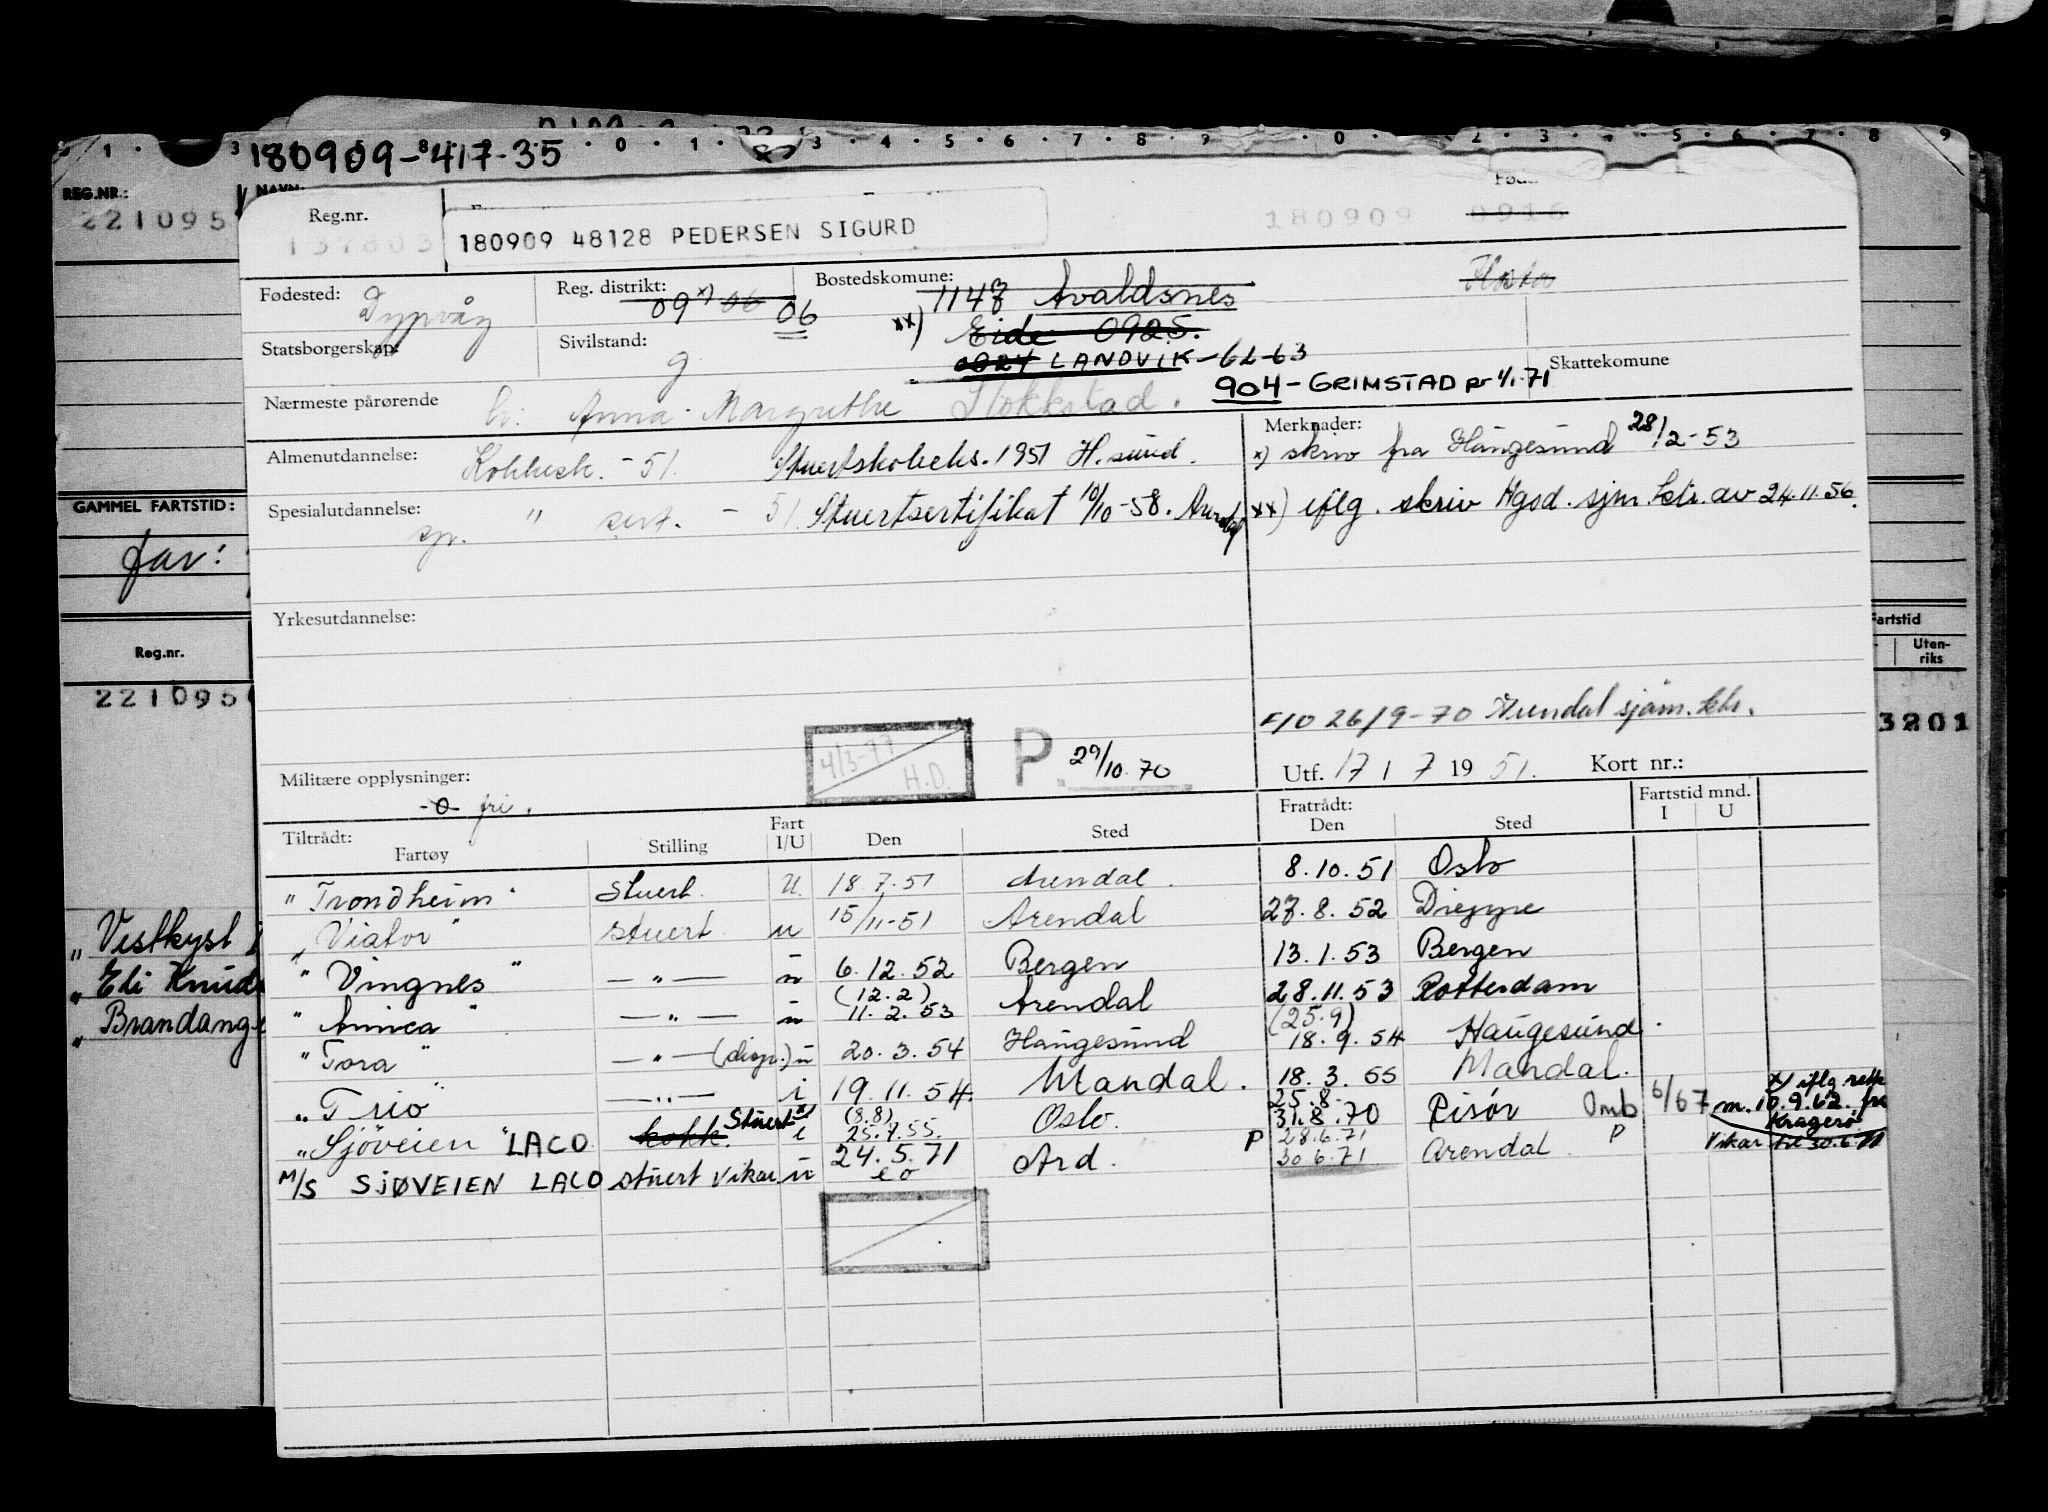 180909-417-35
REG.NR.:
221095
Reg.nr.
180909 48128 PEDERSEN SIGURD
180909 0916
Fødested: Dypvåg
Reg. distrikt: 09 x) 06 06
Bostedskomune: 1147 Avaldsnes
Flosta
xx) Eide 0925.
Statsborgerskap:
Sivilstand: g
0924 LANDVIK -62-63
Skattekomune
904 - GRIMSTAD pr 1/1-71
Nærmeste pårørende h: Anna Margrethe Stokkstad.
Merknader:
x) skriv fra Haugesund 28/2-53
Almenutdannelse: Kokksk. -51. Stuertskoleeks. 1951 H.sund.
GAMMEL FARTSTID:
Spesialutdannelse: sp. " sert. - 51 Stuertsertifikat 10/10-58. Arendal
xx) iflg. skriv Hgsd. sjm. ktr. av 24.11.56.
far:
Yrkesutdannelse:
Fartstid
Reg.nr.
Uten-
riks
221095
F/O 26/9-70 Arendal sjøm. ktr.
3201
4/3-77
H.D.
P. 29/10.70
Militære opplysninger:
-0- fri.
Utf. 17 / 7 19 51. Kort nr.:
Tiltrådt:
Fratrådt:
Fartstid mnd.
Fartøy Stilling Fart I/U Den Sted Den Sted I U
"Trondheim" Stuert. U 18.7.51 Arendal. 8.10.51 Oslo
"Viator" stuert u 15/11-51 Arendal 27.8.52 Dieppe
"Vingnes" — " — u 6.12.52 Bergen 13.1.53 Bergen
"Aninea" — " — u (12.2) 11.2.53 Arendal 28.11.53 Rotterdam
"Tora" — " — (disp.) u 20.3.54 Haugesund (25.9) 18.9.54 Haugesund.
"Trio" — " — i 19.11.54. Mandal. 18.3.55 Mandal.
"Sjöveien" LACO kokk. Stuert x) i (8.8) 25.7.55. Oslo. 25.8. 31.8.70 Risør Omb 6/67 x) iflg rett
m. 10.9.62. fra
Kragerø
M/S SJØVEIEN LACO stuert vikar u 24.5.71 Ard. P 28.6.71 30.6.71 Arendal. P Vikar til 30.6.71
"Vestkyst
"Eli Knud
"Brandang